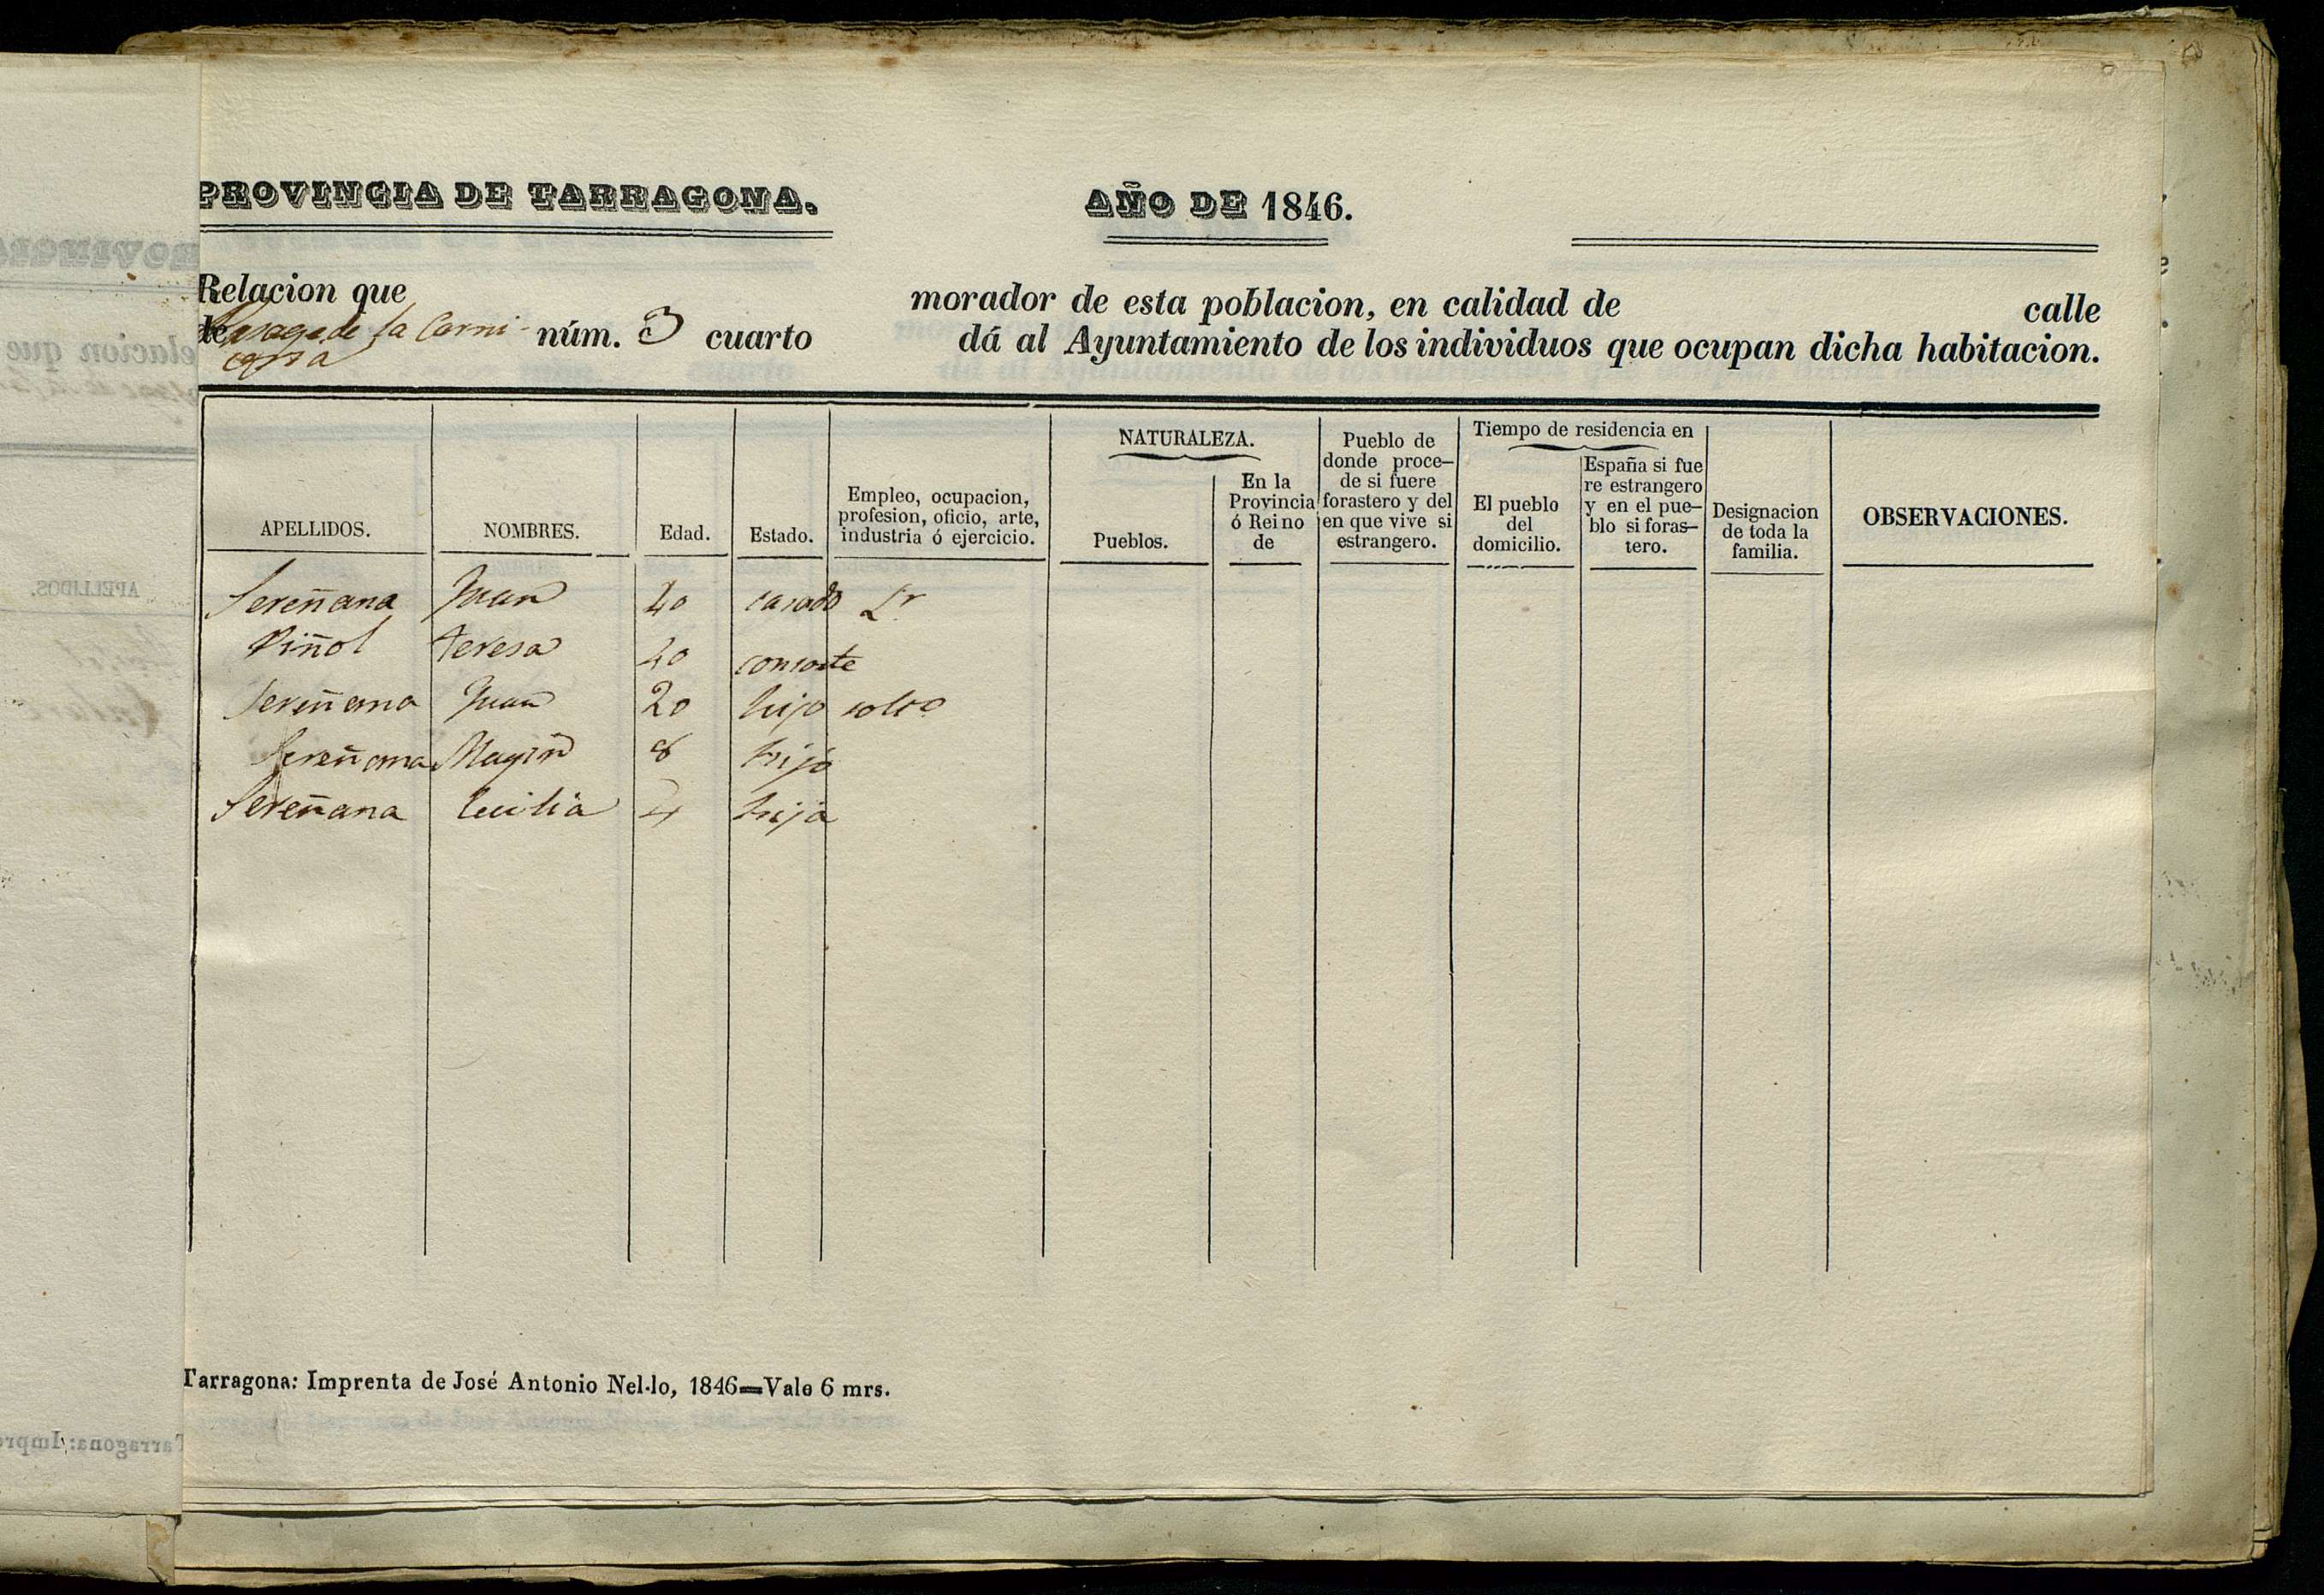 PROVINCIA DE TARRAGONA.
AÑO DE 1846.
Relacion que morador de esta poblacion, en calidad de calle
de Pasage de la Carni- núm. 3 cuarto dá al Ayuntamiento de los individuos que ocupan dicha habitacion.
APELLIDOS.
NOMBRES.
Edad.
Estado.
Empleo, ocupacion,
profesion, oficio, arte,
industria ó ejercicio.
NATURALEZA.
Pueblos.
En la
Provincia
ó Reino
de
Pueblo de
donde proce-
de si fuere
forastero y del
en que vive si
estrangero.
Tiempo de residencia en
El pueblo
del
domicilio.
España si fue
re estrangero
y en el pue-
blo si foras-
tero.
Designacion
de toda la
familia.
OBSERVACIONES.
Sereñana Juan 40 casado Lr
Piñol Teresa 40 consorte
Sereñana Juan 20 hijo solto
Sereñana Magin 8 hijo
Sereñana Cecilia 4 hija
Tarragona: Imprenta de José Antonio Nel·lo, 1846=Vale 6 mrs.
APELLIDOS.